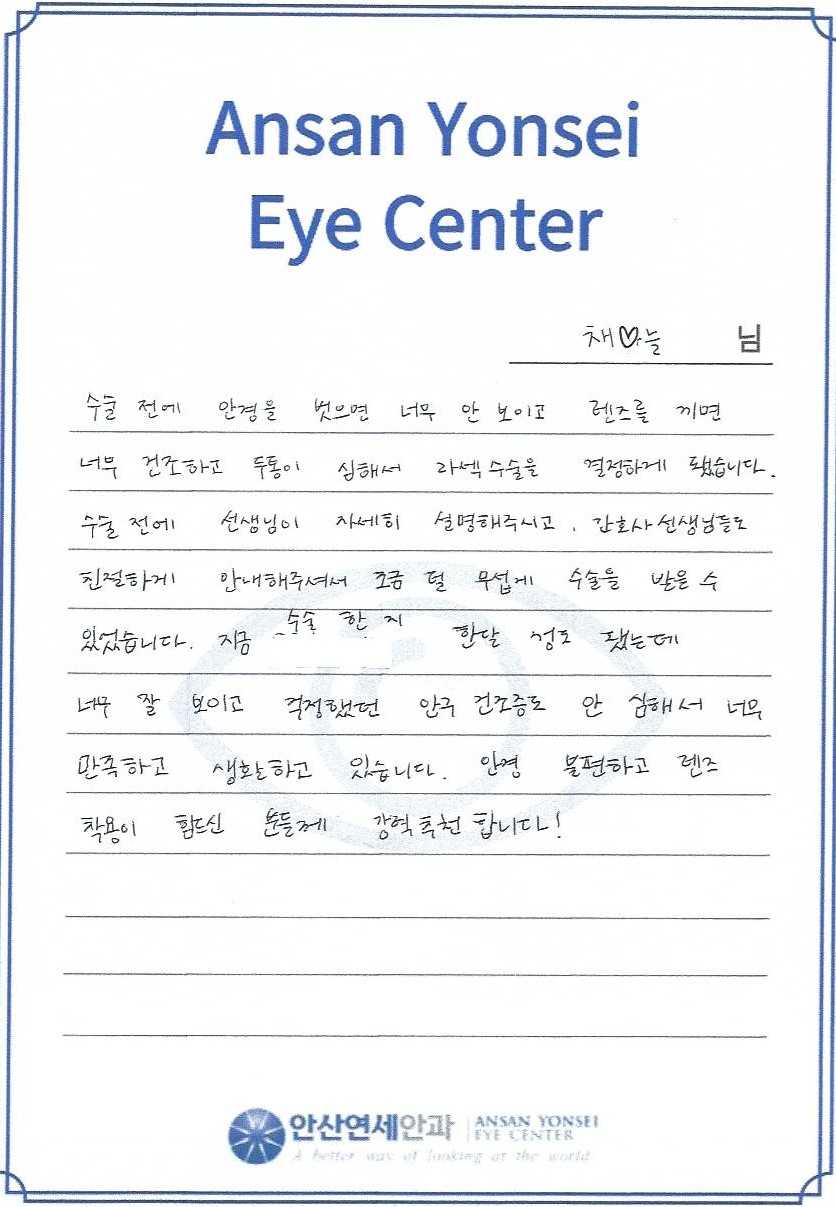 Ansan Yonsei
Eye Center
채♡늘 님
수술 전에 안경을 벗으면 너무 안 보이고 렌즈를 끼면
너무 건조하고 두통이 심해서 라섹수술을 결정하게 됐습니다.
수술 전에 선생님이 자세히 설명해주시고, 간호사선생님들도
친절하게 안내해주셔서 조금 덜 무섭게 수술을 받을 수
있었습니다. 지금 수술 한 지 한달 정도 됐는데
너무 잘 보이고 걱정했던 안구 건조증도 안 심해서 너무
만족하고 생활하고 있습니다. 안경 불편하고 렌즈
착용이 힘드신 분들께 강력추천 합니다!
안산연세안과 ANSAN YONSEI
EYE CENTER
A better way of looking at the world